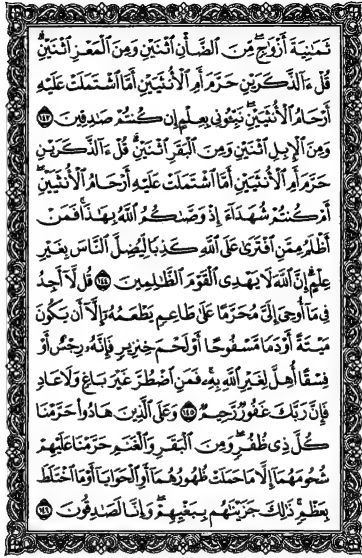 ثَمَٰنِيَةَ أَزْوَٰجٍ مِّنَ ٱلضَّأْنِ ٱثْنَيْنِ وَمِنَ ٱلْمَعْزِ ٱثْنَيْنِ
قُلْ ءَآلذَّكَرَيْنِ حَرَّمَ أَمِ ٱلْأُنثَيَيْنِ أَمَّا ٱشْتَمَلَتْ عَلَيْهِ
أَرْحَامُ ٱلْأُنثَيَيْنِ نَبِّـُٔونِى بِعِلْمٍ إِن كُنتُمْ صَٰدِقِينَ ١٤٣
وَمِنَ ٱلْإِبِلِ ٱثْنَيْنِ وَمِنَ ٱلْبَقَرِ ٱثْنَيْنِ قُلْ ءَآلذَّكَرَيْنِ
حَرَّمَ أَمِ ٱلْأُنثَيَيْنِ أَمَّا ٱشْتَمَلَتْ عَلَيْهِ أَرْحَامُ ٱلْأُنثَيَيْنِ
أَمْ كُنتُمْ شُهَدَآءَ إِذْ وَصَّىٰكُمُ ٱللَّهُ بِهَٰذَا فَمَنْ
أَظْلَمُ مِمَّنِ ٱفْتَرَىٰ عَلَى ٱللَّهِ كَذِبًا لِّيُضِلَّ ٱلنَّاسَ بِغَيْرِ
عِلْمٍ إِنَّ ٱللَّهَ لَا يَهْدِى ٱلْقَوْمَ ٱلظَّٰلِمِينَ ١٤٤ قُل لَّآ أَجِدُ
فِى مَآ أُوحِىَ إِلَىَّ مُحَرَّمًا عَلَىٰ طَاعِمٍ يَطْعَمُهُۥٓ إِلَّآ أَن يَكُونَ
مَيْتَةً أَوْ دَمًا مَّسْفُوحًا أَوْ لَحْمَ خِنزِيرٍ فَإِنَّهُۥ رِجْسٌ أَوْ
فِسْقًا أُهِلَّ لِغَيْرِ ٱللَّهِ بِهِۦ فَمَنِ ٱضْطُرَّ غَيْرَ بَاغٍ وَلَا عَادٍ
فَإِنَّ رَبَّكَ غَفُورٌ رَّحِيمٌ ١٤٥ وَعَلَى ٱلَّذِينَ هَادُوا۟ حَرَّمْنَا
كُلَّ ذِى ظُفُرٍ وَمِنَ ٱلْبَقَرِ وَٱلْغَنَمِ حَرَّمْنَا عَلَيْهِمْ
شُحُومَهُمَآ إِلَّا مَا حَمَلَتْ ظُهُورُهُمَآ أَوِ ٱلْحَوَايَآ أَوْ مَا ٱخْتَلَطَ
بِعَظْمٍ ذَٰلِكَ جَزَيْنَٰهُم بِبَغْيِهِمْ وَإِنَّا لَصَٰدِقُونَ ١٤٦